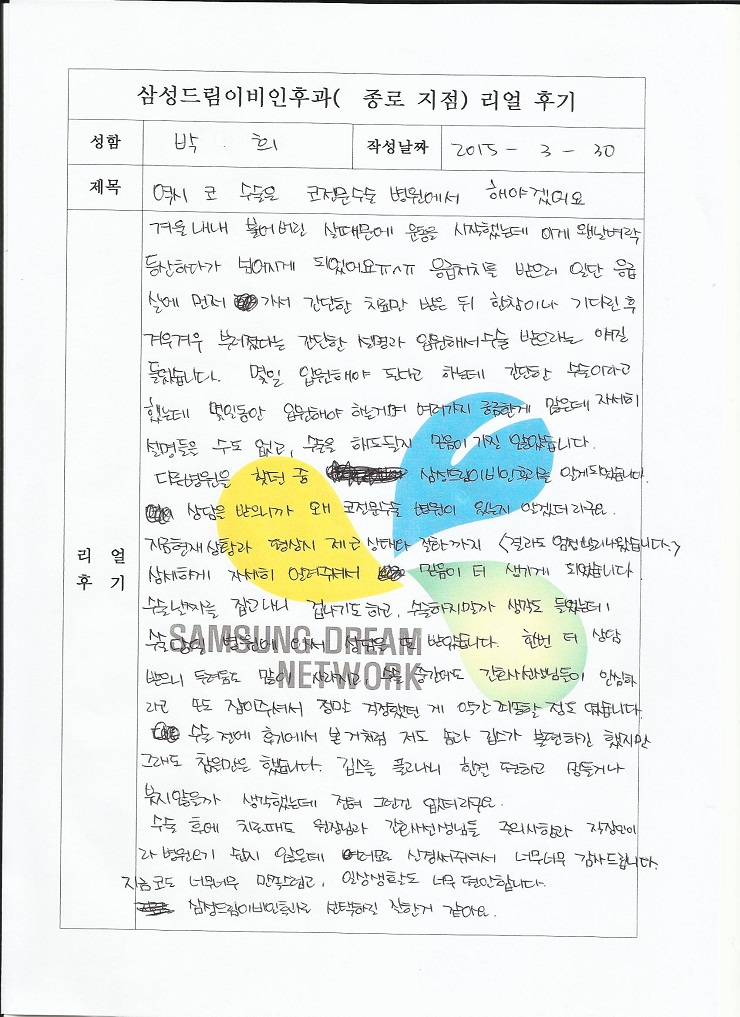 삼성드림이비인후과( 종로 지점) 리얼 후기
성함 박 . 희 작성날짜 2015 - 3 - 30
제목 역시 코 수술은 코전문수술 병원에서 해야겠어요
리얼 후기
겨울내내 불어버린 살때문에 운동을 시작했는데 이게 왠날벼락
등산하다가 넘어지게 되었어요ㅠㅅㅠ 응급처치를 받으러 일단 응급
실에 먼저 가서 간단한 치료만 받은 뒤 한참이나 기다린 후
겨우겨우 부러졌다는 간단한 설명과 입원해서 수술 받으라는 얘길
들었습니다. 몇일 입원해야 된다고 하는데 간단한 수술이라고
했는데 몇일동안 입원해야 하는거며 여러가지 궁금한게 많은데 자세히
설명들을 수도 없고, 수술을 해도될지 믿음이 가질 않았습니다.
다른병원을 찾던 중 삼성드림이비인후과를 알게되었습니다.
상담을 받으니까 왜 코전문수술 병원이 있는지 알겠더라구요.
지금현재상황과 평상시 제 코 상태와 결과까지 <결과도 엄청 나왔습니다.>
상세하게 자세히 알려주셔서 믿음이 더 생기게 되었습니다.
수술날짜를 잡고나니 겁나기도하고, 수술하지말까 생각도 들었는데
수술당일 병원에 와서 상담을 또 받았습니다. 한번 더 상담
받으니 두려움도 많이 사라지고, 수술 중간에도 간호사선생님들이 안심하
라고 손도 잡아주셔서 정말 걱정했던 게 약간 정도 였습니다.
수술 전에 후기에서 본 거처럼 저도 솜과 깁스가 불편하긴 했지만
그래도 참을만은 했습니다. 깁스를 풀고나니 한결 편하고 멍들거나
붓지않을까 생각했는데 전혀 그런건 없더라구요.
수술 후에 치료때도 원장님과 간호사선생님들 주의사항과 직장인이
라 병원오기 쉽지 않은데 여러모로 신경써주셔서 너무너무 감사드립니다.
지금코도 너무너무 만족스럽고, 일상생활도 너무 편안합니다.
삼성드림이비인후과로 선택하길 잘한거 같아요.
SAMSUNG DREAM
NETWORK